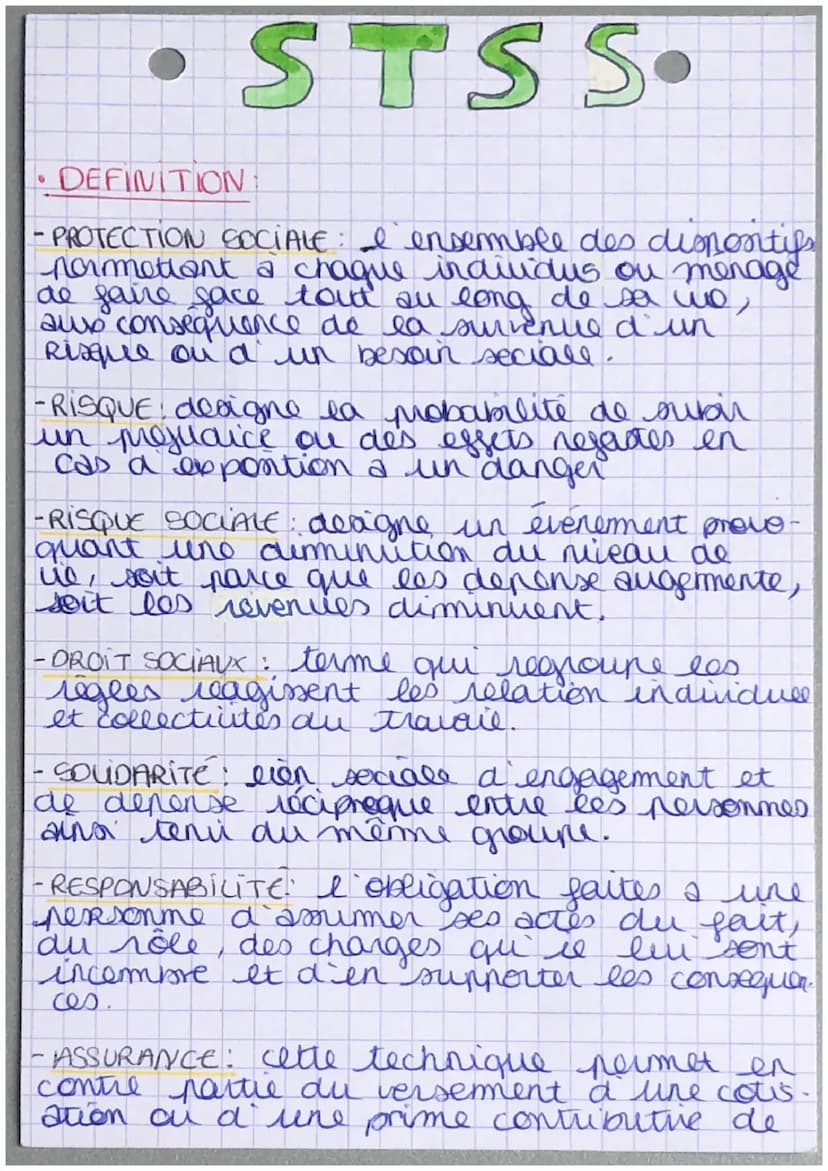 STSS
• DEFINITION:
- PROTECTION SOCIALE : l'ensemble des dispositifs
permettant à chaque individus ou menage
de faire face tout au long de sa vie,
aux conséquence de la survenue d'un
Risque ou d'un besoin sociale.
- RISQUE : designe la probabilité de subir
un préjudice ou des effets negatifs en
cas d'exposition à un danger
- RISQUE SOCIALE : designe un événement provo-
quant une diminution du niveau de
vie, soit parce que les depense augmente,
soit les revenues diminuent.
- DROIT SOCIAUX : terme qui regroupe les
règles réagissent les relation individuel
et collectivités du travail.
- SOLIDARITÉ : lien sociale d'engagement et
de depense réciproque entre les personnes
ainsi tenu du même groupe.
- RESPONSABILITÉ : l'obligation faites a une
personne d'assumer ses actes du fait,
du rôle, des charges qui le lui sont
incombre et d'en supporter les consequen-
ces.
- ASSURANCE : cette technique permet en
contre partie du versement d'une cotis-
ation ou d'une prime contributive de